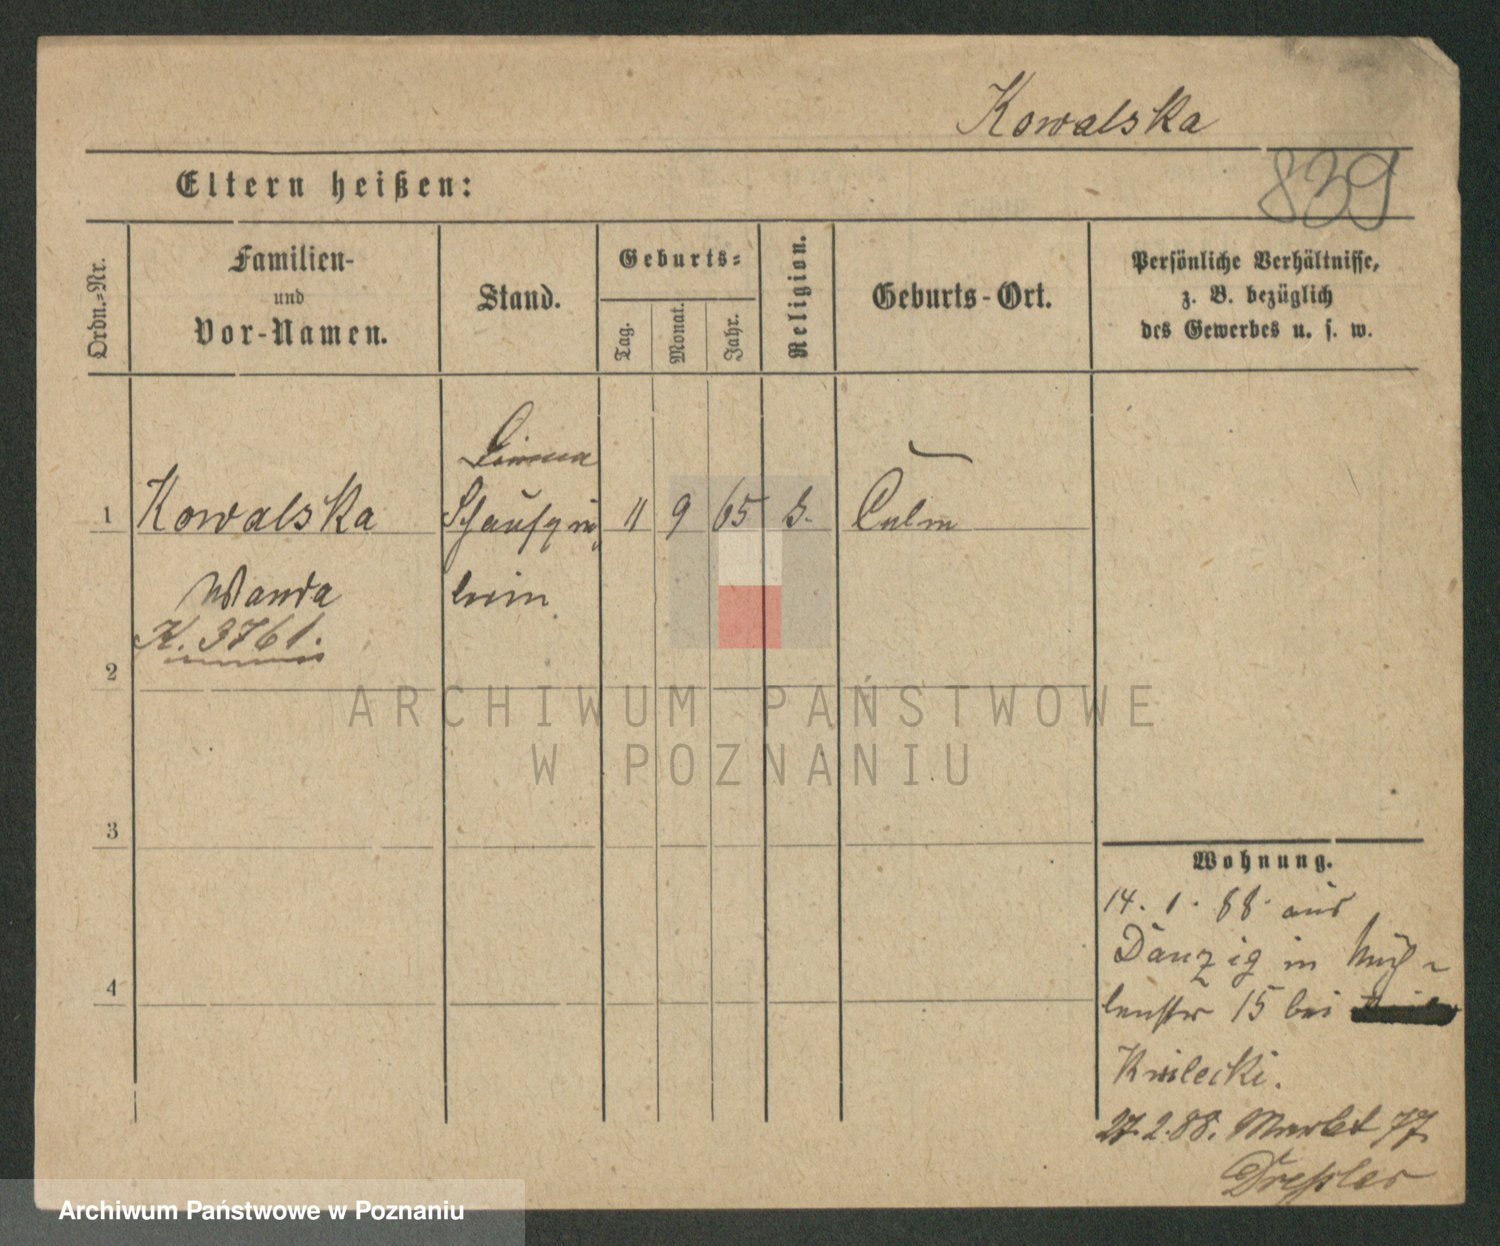 Kowalska
839
Eltern heißen:
Ordn.=Nr.
Familien-
und
Vor-Namen.
Stand.
Geburts=
Tag.
Monat.
Jahr.
Religion.
Geburts-Ort.
Persönliche Verhältnisse,
z. B. bezüglich
des Gewerbes u. s. w.
1
Kowalska
Schauspie
11
9
65
Culm
Wanda
lerin
K. 3761.
2
ARCHIWUM PAŃSTWOWE
W POZNANIU
3
Wohnung.
14. 1. 88. aus
Danzig in Müh-
4
lenstr 15 bei
Kwilecki.
27.2.88. Markt 77
Dreßler
Archiwum Państwowe w Poznaniu